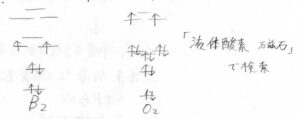 「液体酸素 磁石」
で検索
B₂
O₂